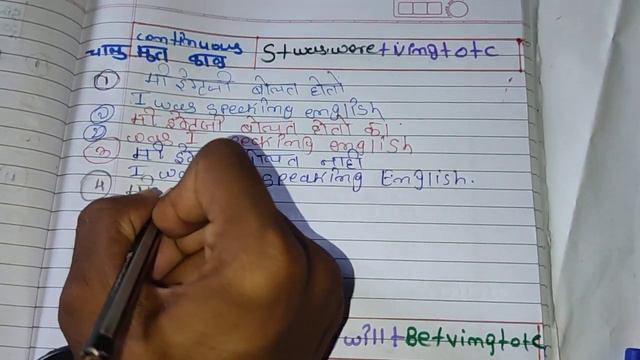 continuous
चालु भुत काळ S+was.were+ving+o+c
1 मी इंग्रजी बोलत होतो
I was speaking english
2 मी इंग्रजी बोलत होतो का.
2 was I speaking english
3 मी बोलत नाही
I speaking English.
4 मी
will+Be+ving+o+c